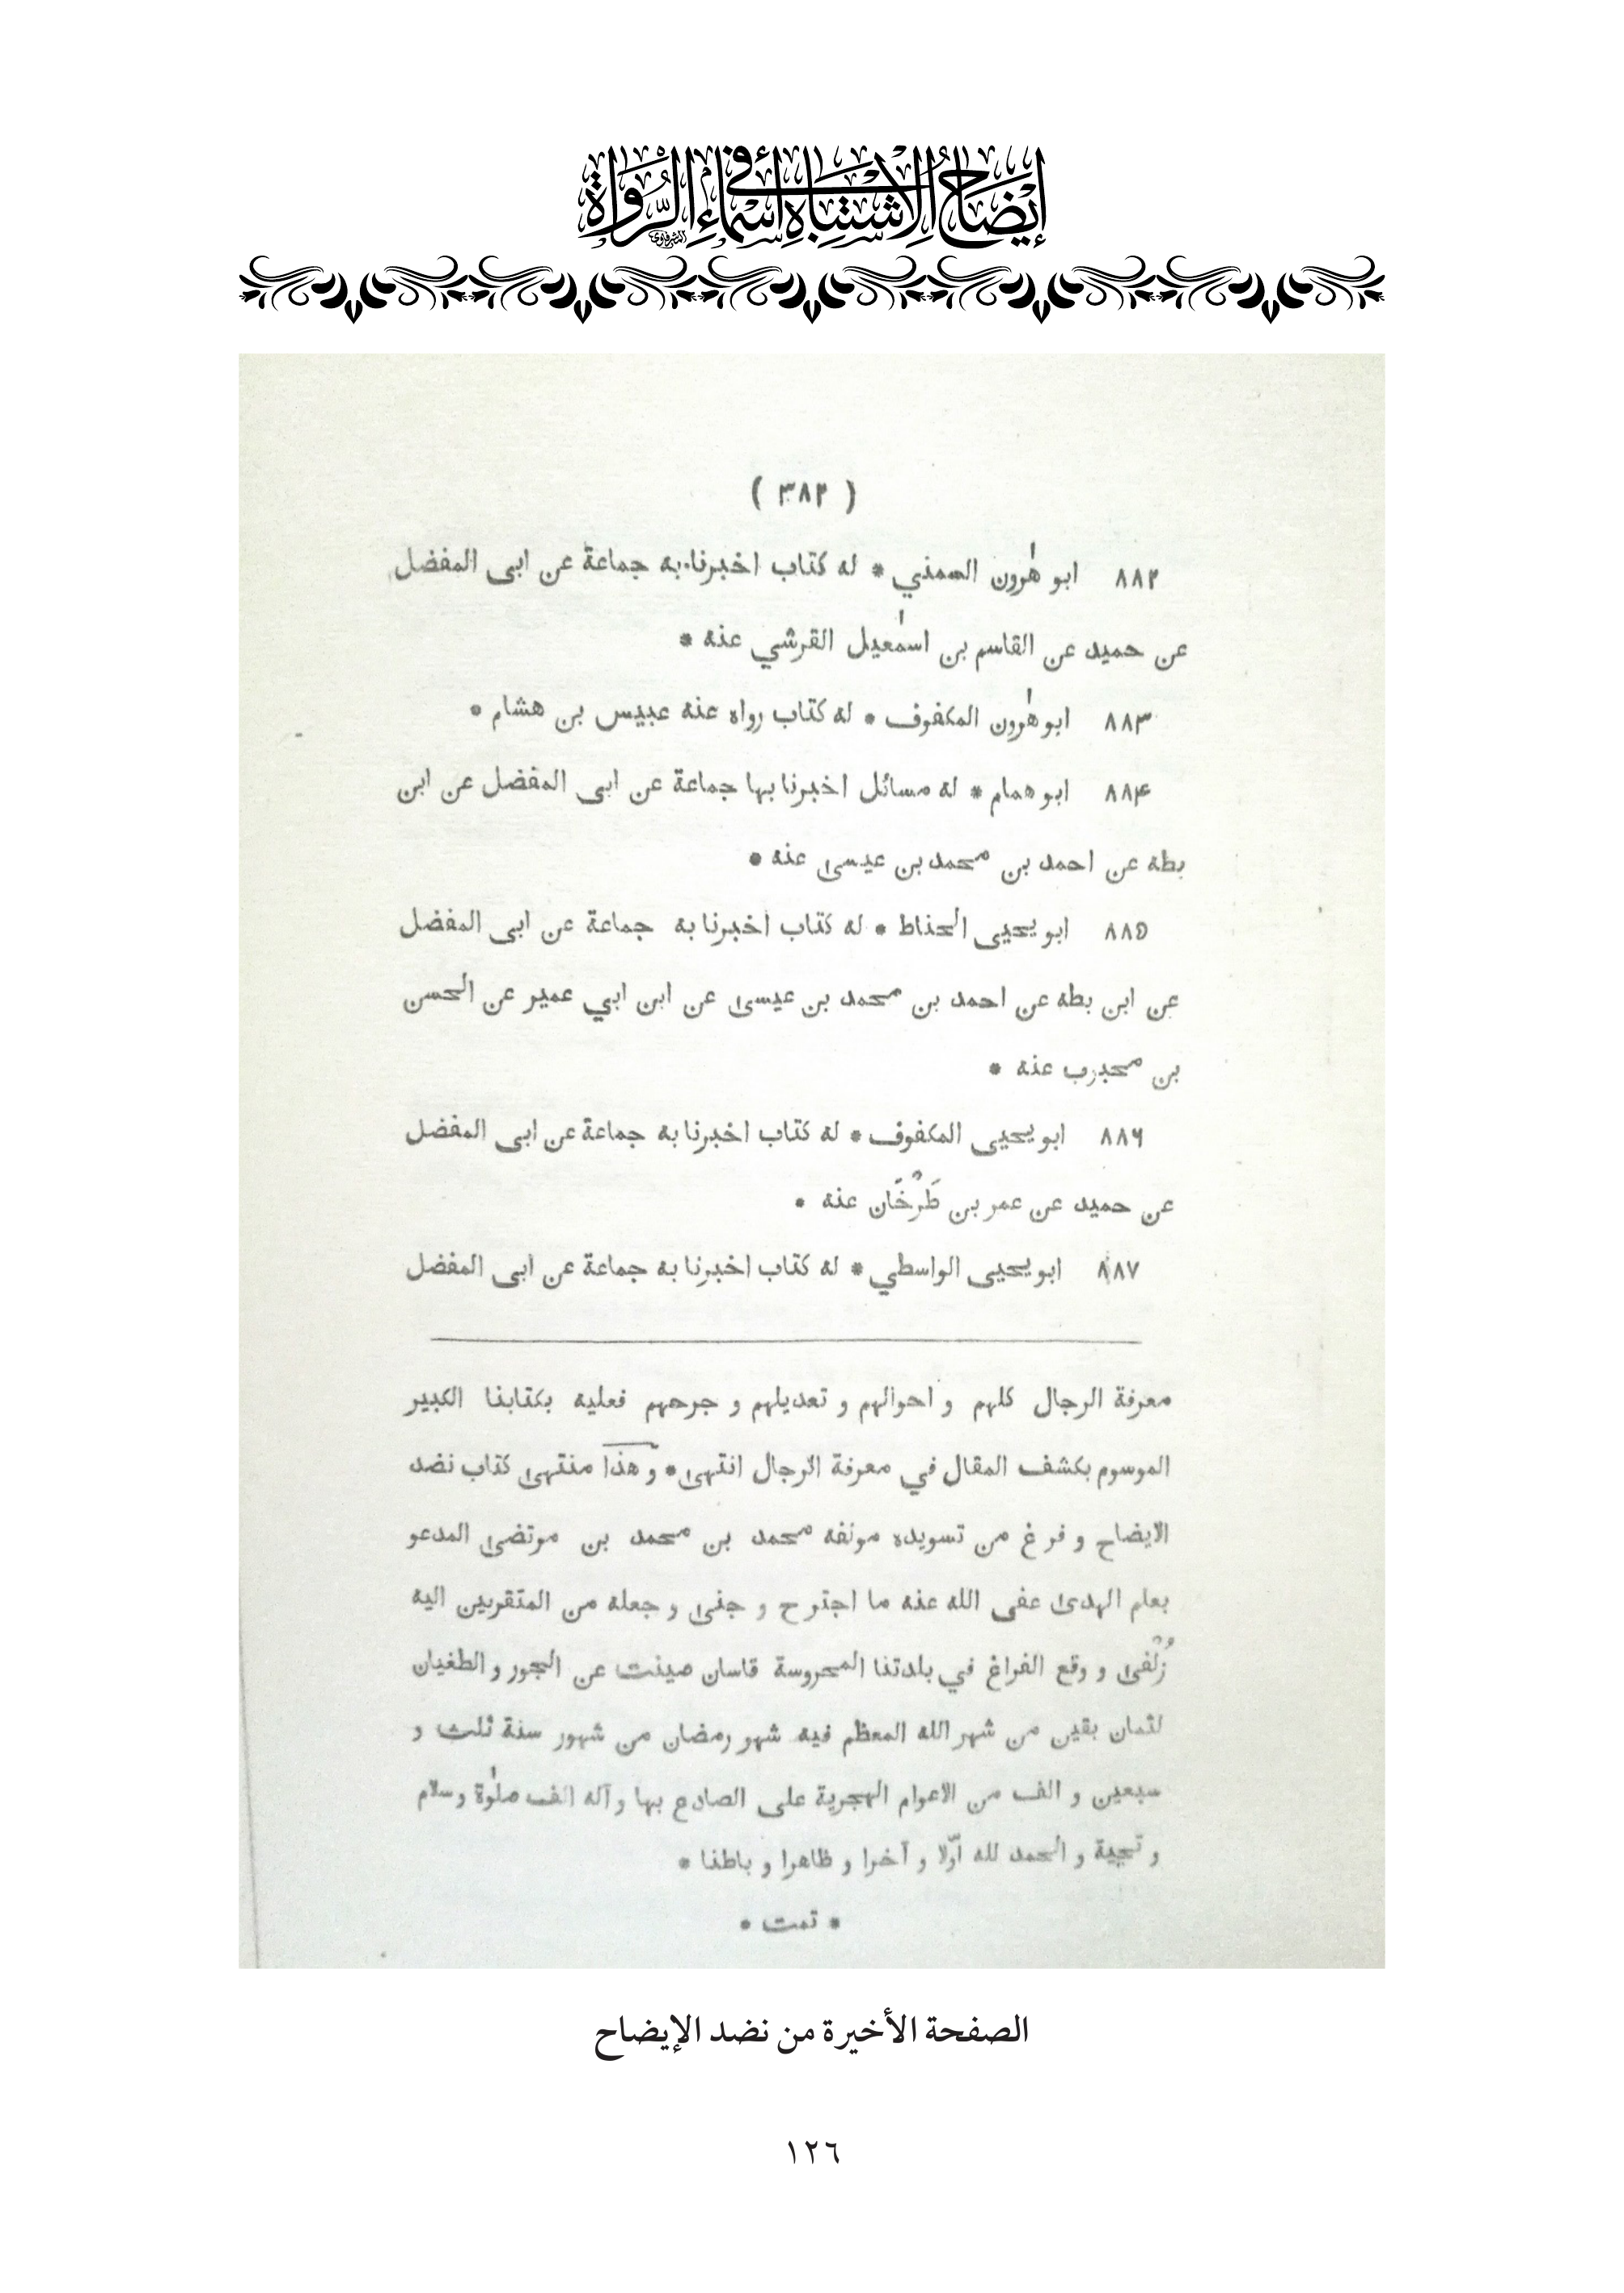 إيضاح الاشتباه في أسماء الرواة
( ٣٨٢ )
٨٨٢ ابو هٰرون السمني * له كتاب اخبرنا به جماعة عن ابى المفضل
عن حميد عن القاسم بن اسمٰعيل القرشي عنه *
٨٨٣ ابو هٰرون المكفوف * له كتاب رواه عنه عبيس بن هشام *
٨٨۴ ابو همام * له مسائل اخبرنا بها جماعة عن ابى المفضل عن ابن
بطه عن احمد بن محمد بن عيسى عنه *
٨٨۵ ابو يحيى الحناط * له كتاب اخبرنا به جماعة عن ابى المفضل
عن ابن بطه عن احمد بن محمد بن عيسى عن ابن ابي عمير عن الحسن
بن محبوب عنه *
٨٨۶ ابو يحيى المكفوف * له كتاب اخبرنا به جماعة عن ابى المفضل
عن حميد عن عمر بن طَرْخَان عنه *
٨٨٧ ابو يحيى الواسطي * له كتاب اخبرنا به جماعة عن ابى المفضل
معرفة الرجال كلهم و احوالهم و تعديلهم و جرحهم فعليه بكتابنا الكبير
الموسوم بكشف المقال في معرفة الرجال انتهى * و هذا منتهى كتاب نضد
الايضاح و فرغ من تسويده مولفه محمد بن محمد بن مرتضى المدعو
بعلم الهدى عفى الله عنه ما اجترح و جنى و جعله من المتقربين اليه
زُلْفى و وقع الفراغ في بلدتنا المحروسة قاسان صينت عن الجور و الطغيان
لثمان بقين من شهر الله المعظم فيه شهر رمضان من شهور سنة ثلث و
سبعين و الف من الاعوام الهجرية على الصادع بها و آله الف صلٰوة و سلام
و تحية و الحمد لله اوّلا و آخرا و ظاهرا و باطنا *
* تمت *
الصفحة الأخيرة من نضد الإيضاح
١٢٦